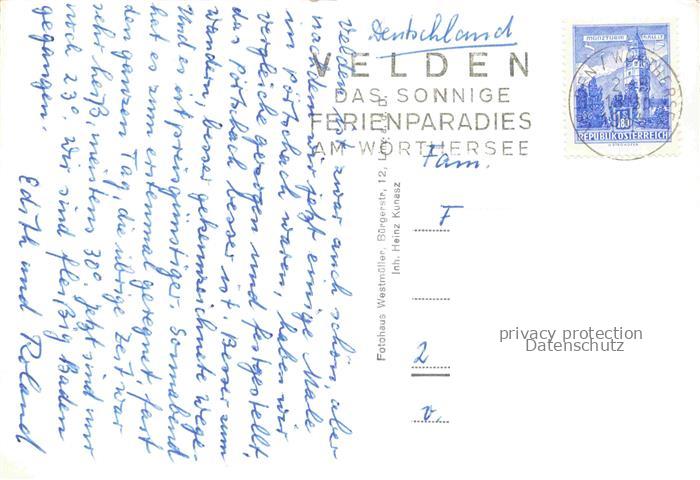 Velden ist zwar auch schön, aber
nachdem wir jetzt einige Male
in Pörtschach waren, haben wir
Vergleiche gezogen und festgestellt,
das Pörtschach besser ist. Besser zum
Wandern, besser gekennzeichnete Wege.
Und es ist preisgünstiger. Sonnabend
hat es zum erstenmal geregnet, fast
den ganzen Tag, die übrige Zeit war
sehr heiß, meistens 30°. Jetzt sind nur
noch 23°. Wir sind fleißig Baden
gegangen.
Edith und Roland
Fotohaus Westmüller, Bürgerstr. 12, Linz a. d. D.
Inh. Heinz Kunasz
Deutschland
VELDEN
DAS SONNIGE
FERIENPARADIES
AM WÖRTHERSEE
MÜNZTURM HALL I.T.
S 1.80
REPUBLIK ÖSTERREICH
Fam.
F
2
v.
privacy protection
Datenschutz